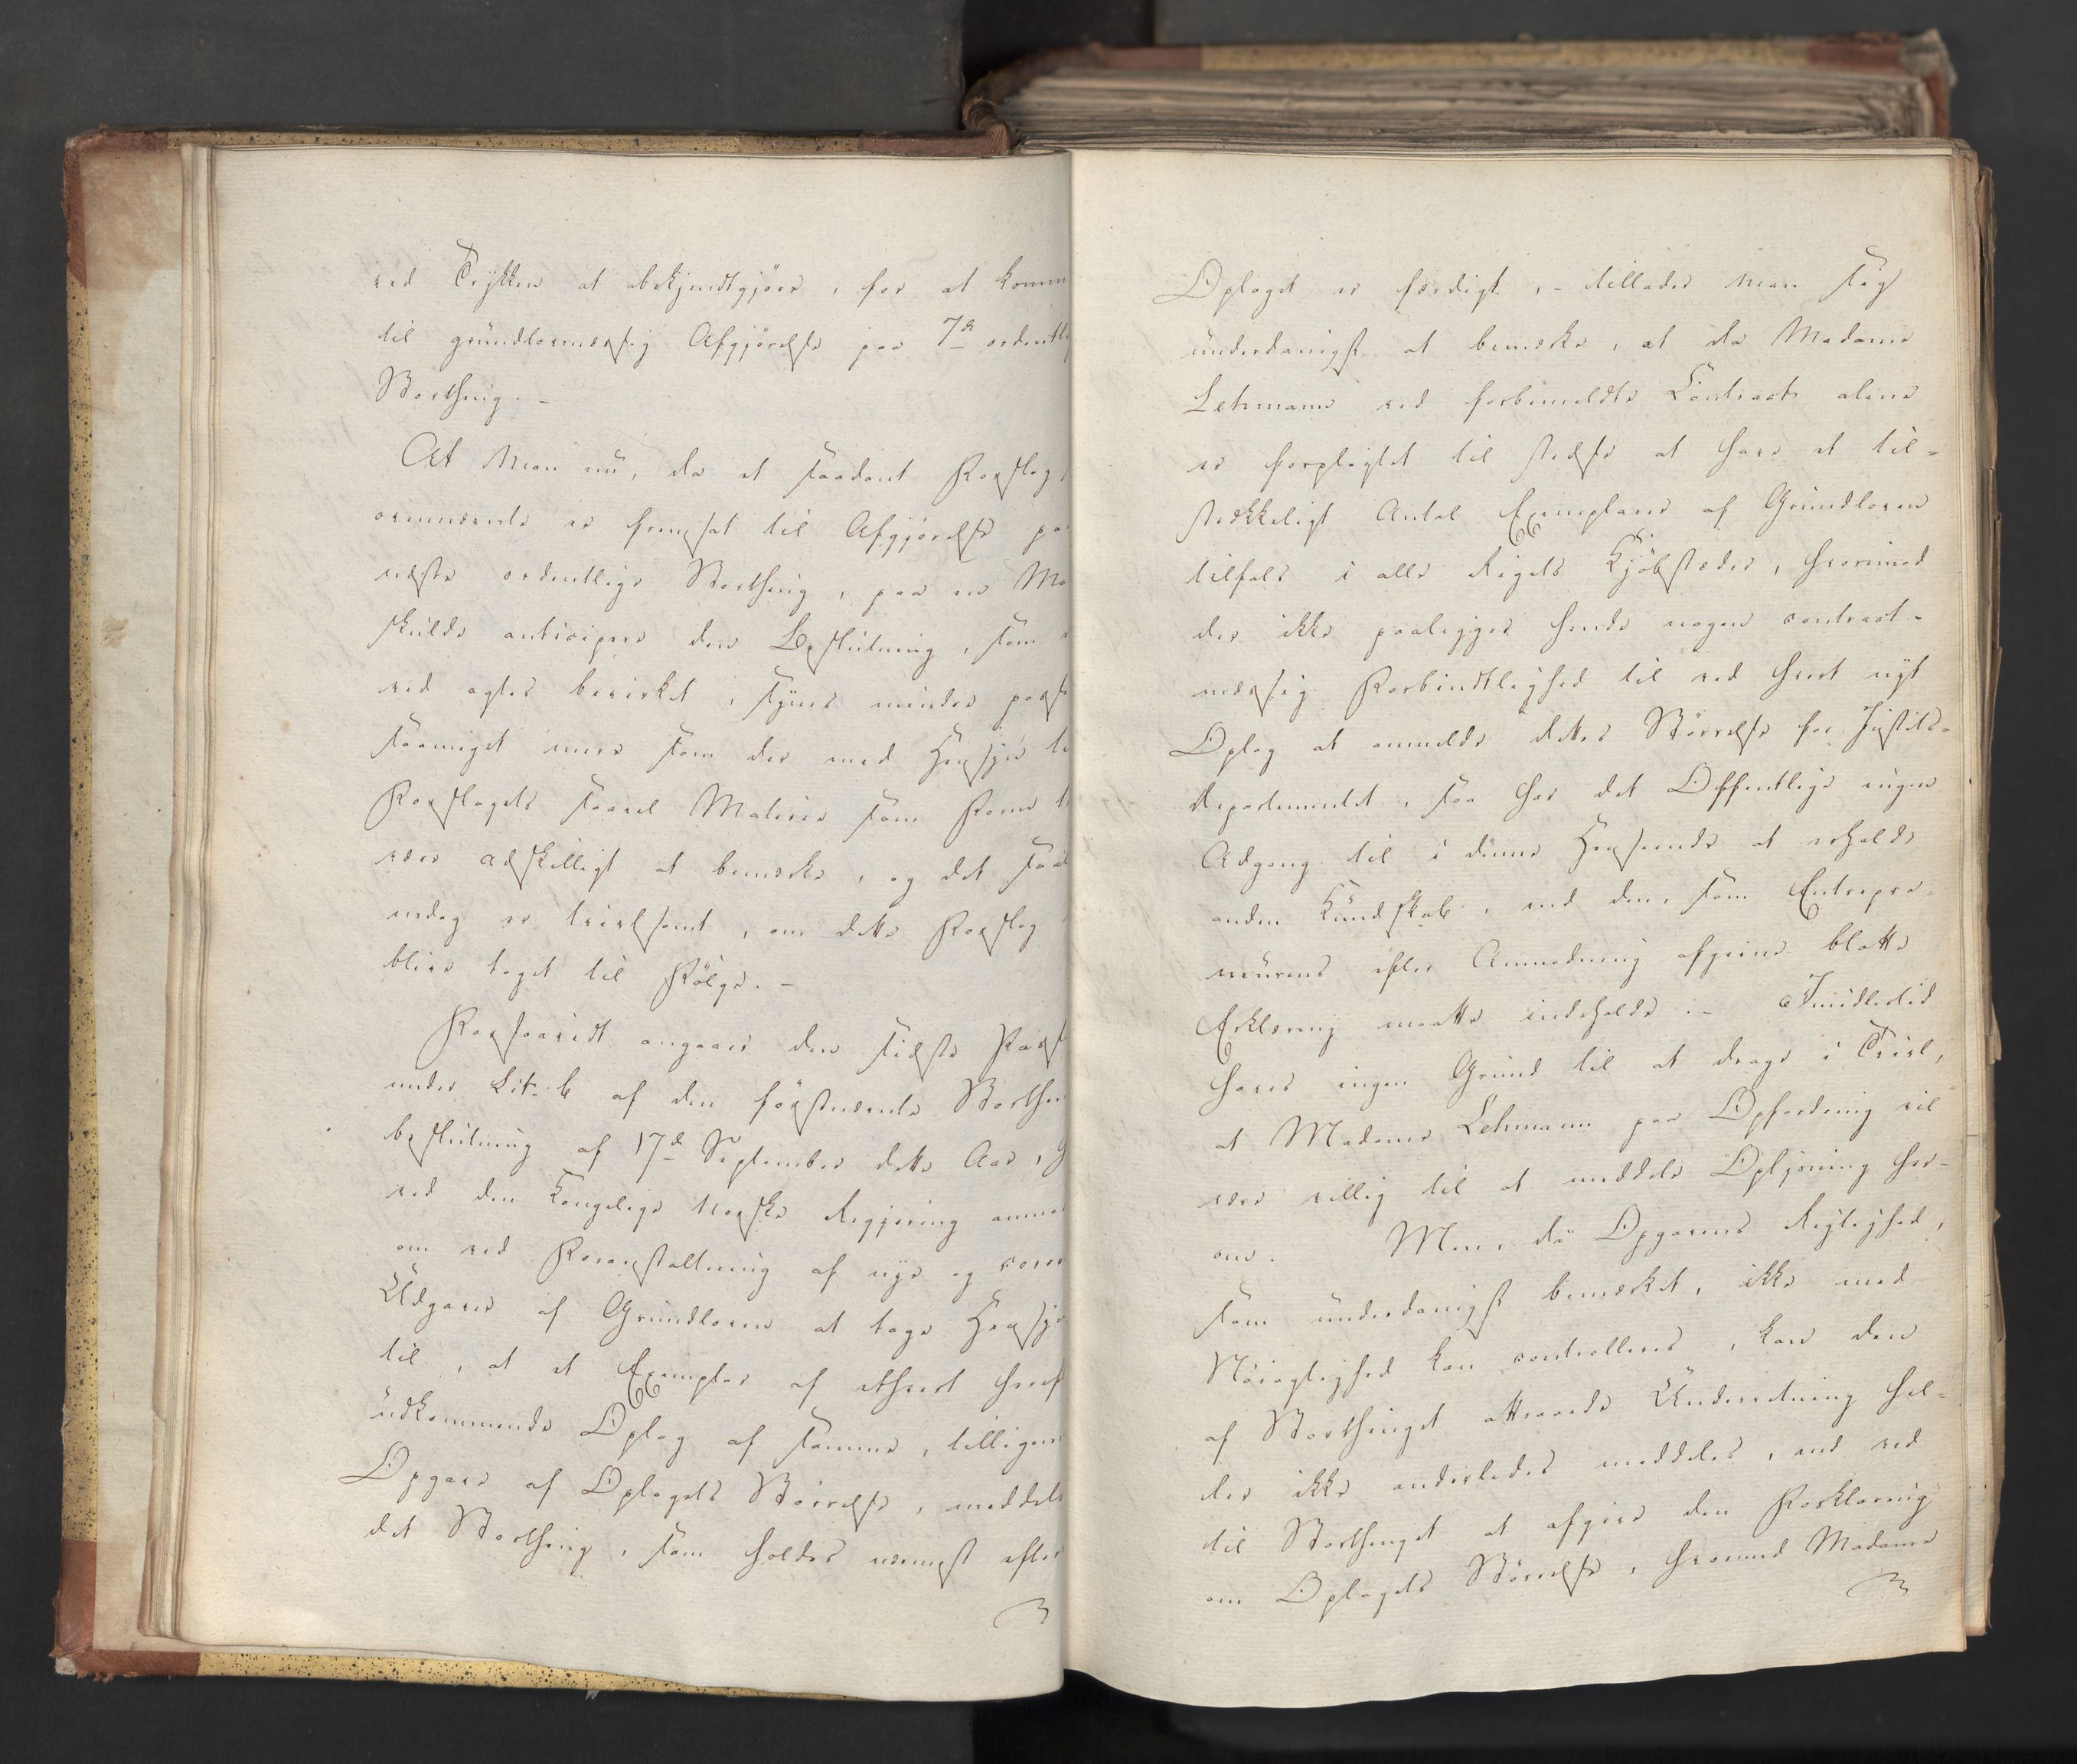 ved Trykken at bekjendtgjøre, for at komm
til grundlovmæssig Afgjørelse paa 7de ordentli
Storthing. –
At Man nu, da et saadant Forslag
ovennævnte er fremsat til Afgjørelse pa
næste ordentlige Storthing, paa en Ma
skulde anticipere den Beslutning, som
ved agtes bevirket, synes mindre pass
saameget mere som der med Hensyn ti
Forslagets saavel Materie som Form t
være adskilligt at bemærke, og det saa
endog er tvivlsomt, om dette Forslag
bliver taget til Følge. –
Forsaavidt angaaer den sidste Pas
under Lit. b af den förstnævnte Storthin
beslutning af 17de September dette Aar,
ved den Kongelige Norske Regjering anmo
om ved Foranstaltning af nye og corre
Udgaver af Grundloven at tage Hensyn
til, at et Exemplar af ethvert heref
udkommende Oplag af samme, tilligem
Opgave af Oplagets Størrelse, meddel
det Storthing, som holdes nærmest efter
Oplaget er færdigt, – tillader Man sig
underdanigst at bemærke, at da Madame
Lehmann ved forbemeldte Contract alene
er forpligtet til stedse at have et til-
strækkeligt Antal Exemplarer af Grundloven
tilfals i alle Rigets Kjöbstæder, hvorimod
der ikke paalægges hende nogen contract-
mæssig Forbindtlighed til ved hvert nyt
Oplag at anmelde dettes Størrelse for Justits-
departementet, saa har det Offentlige ingen
Adgang til i denne Henseende at erholde
anden Kundskab, end den, som Entrepre-
neurens efter Anmodning afgivne blotte
Erklæring maatte indeholde. – Imidlertid
haves ingen Grund til at drage i Tvivl,
at Madame Lehmann paa Opfordring vil
være villig til at meddele Oplysning her-
om. Men, da Opgavens Rigtighed,
som underdanigst bemærket, ikke med
Nøiagtighed kan controlleres, kan den
af Storthinget attraaede Underretning hel-
der ikke anderledes meddeles, end ved
til Storthinget at afgive den Forklaring
om Oplagets Størrelse, hvormed Madame